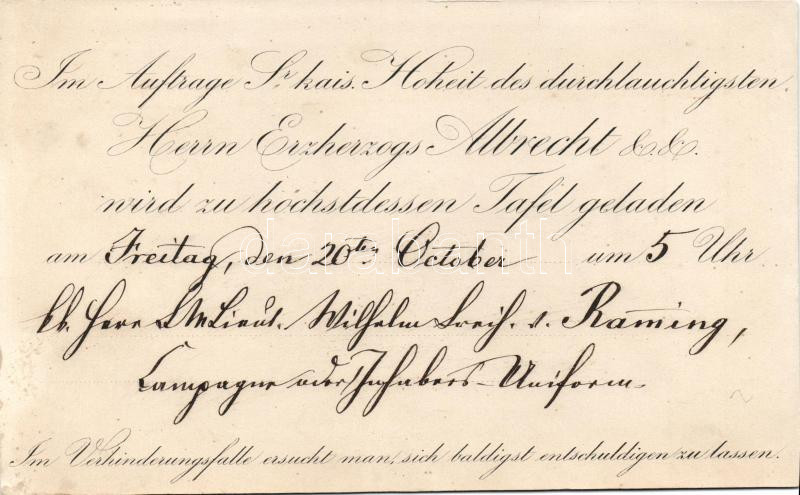 Im Auftrage Sr kais. Hoheit des durchlauchtigsten
Herrn Erzherzogs Albrecht &.&.
wird zu höchstdessen Tafel geladen
am Freitag, den 20ten October um 5 Uhr
Herr FMLieut. Wilhelm Freih. v. Ram̄ing,
Campagne oder Inhabers-Uniform
Im Verhinderungsfalle ersucht man, sich baldigst entschuldigen zu lassen.